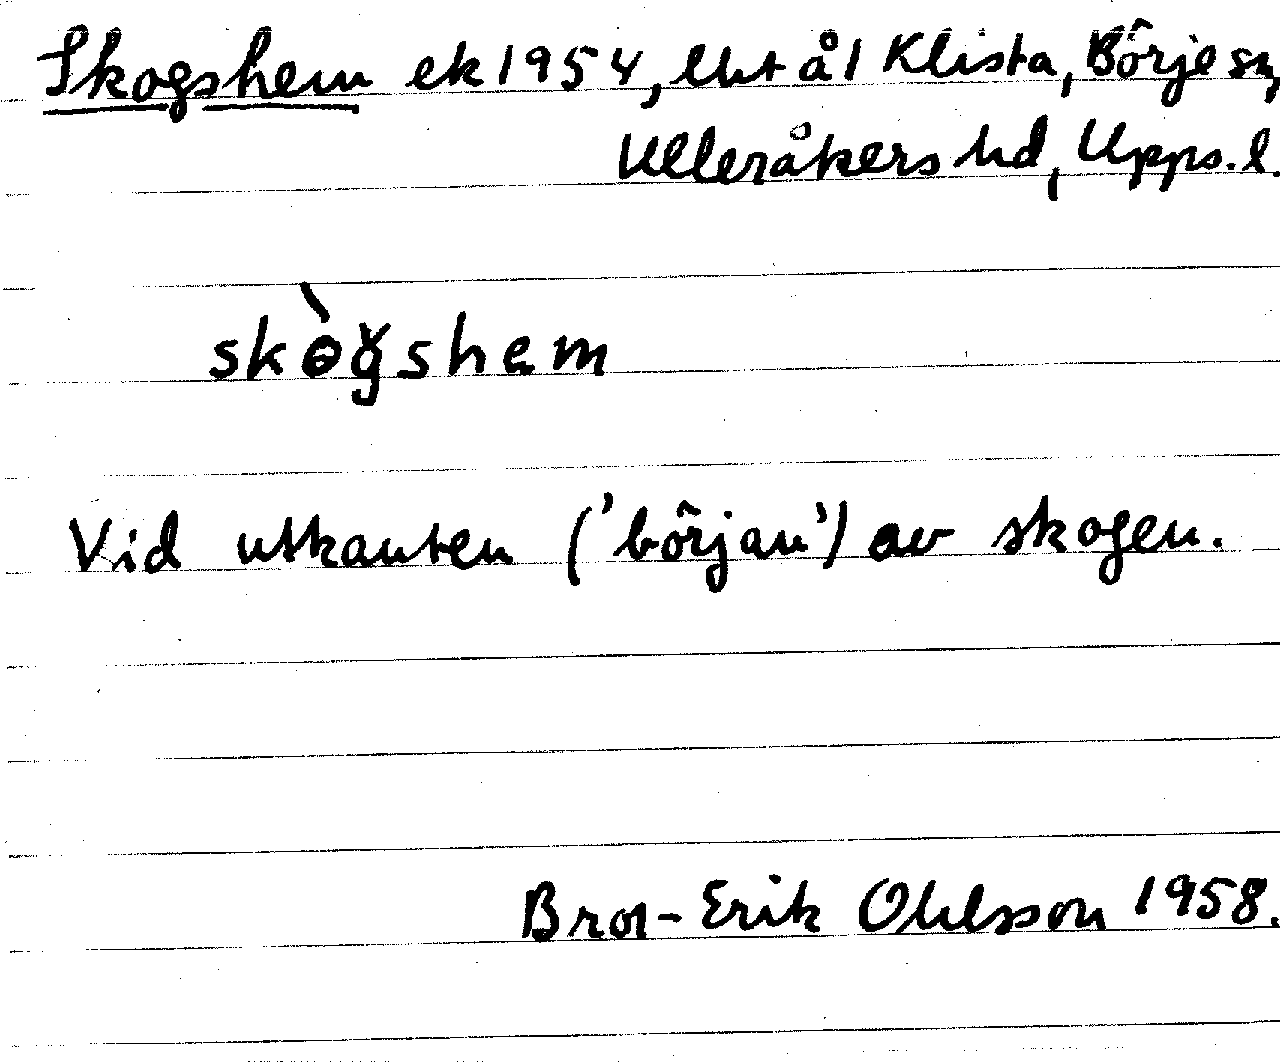 Skogshem ek 1954, lht ål Klista, Börje sn,
Ulleråkers hd, Upps. l.
skɵ̀ǧshem
Vid utkanten ('början') av skogen.
Bror-Erik Ohlsson 1958.